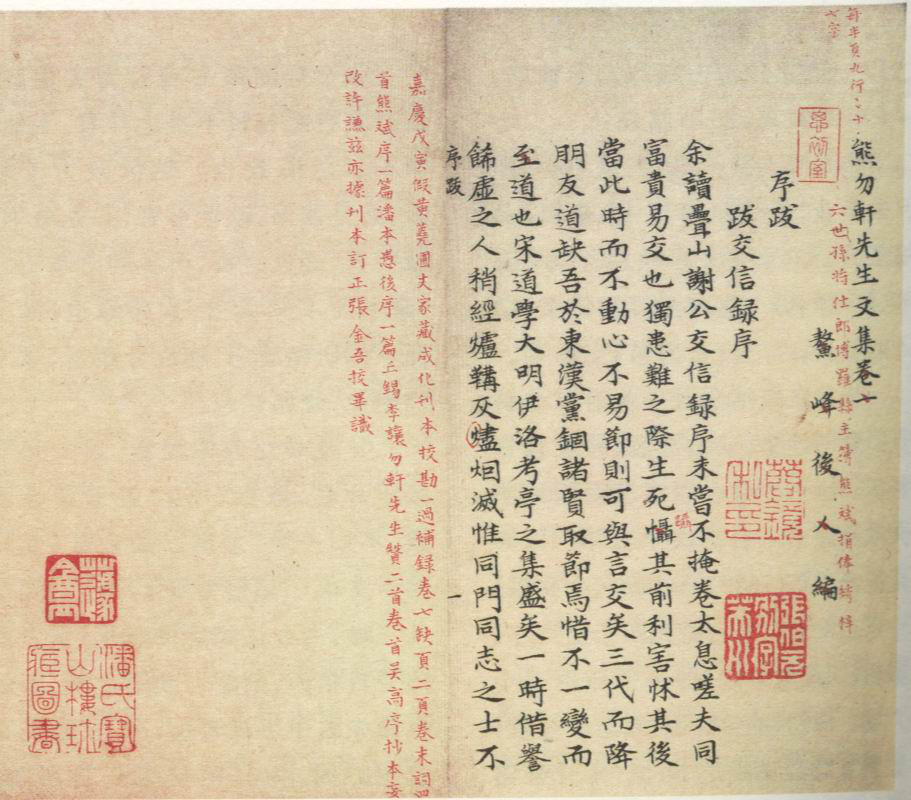 每半頁九行二十
七字
熊勿軒先生文集卷一
六世孫將仕郎博羅縣主簿熊斌捐俸鋟梓
鰲峰後人編
序跋
跋交信録序
余讀疊山謝公交信録序未嘗不掩卷太息嗟夫同
富貴易交也獨患難之際生死懾其前利害怵其後
當此時而不動心不易節則可與言交矣三代而降
朋友道缺吾於東漢黨錮諸賢取節焉惜不一變而
至道也宋道學大明伊洛考亭之集盛矣一時借譽
餙虛之人稍經爐鞲灰燼烟滅惟同門同志之士不
序跋
一
嘉慶戊寅假黄蕘圃丈家藏成化刊本挍勘一過補録卷七缺頁二頁卷末詞四
首熊斌序一篇潘本愚後序一篇丘錫李讓勿軒先生贊二首卷首吴高序抄本妄
改許謙兹亦據刊本訂正張金吾挍畢識
張伯元
别字
芙川
潘氏寶
山樓珍
藏圖書